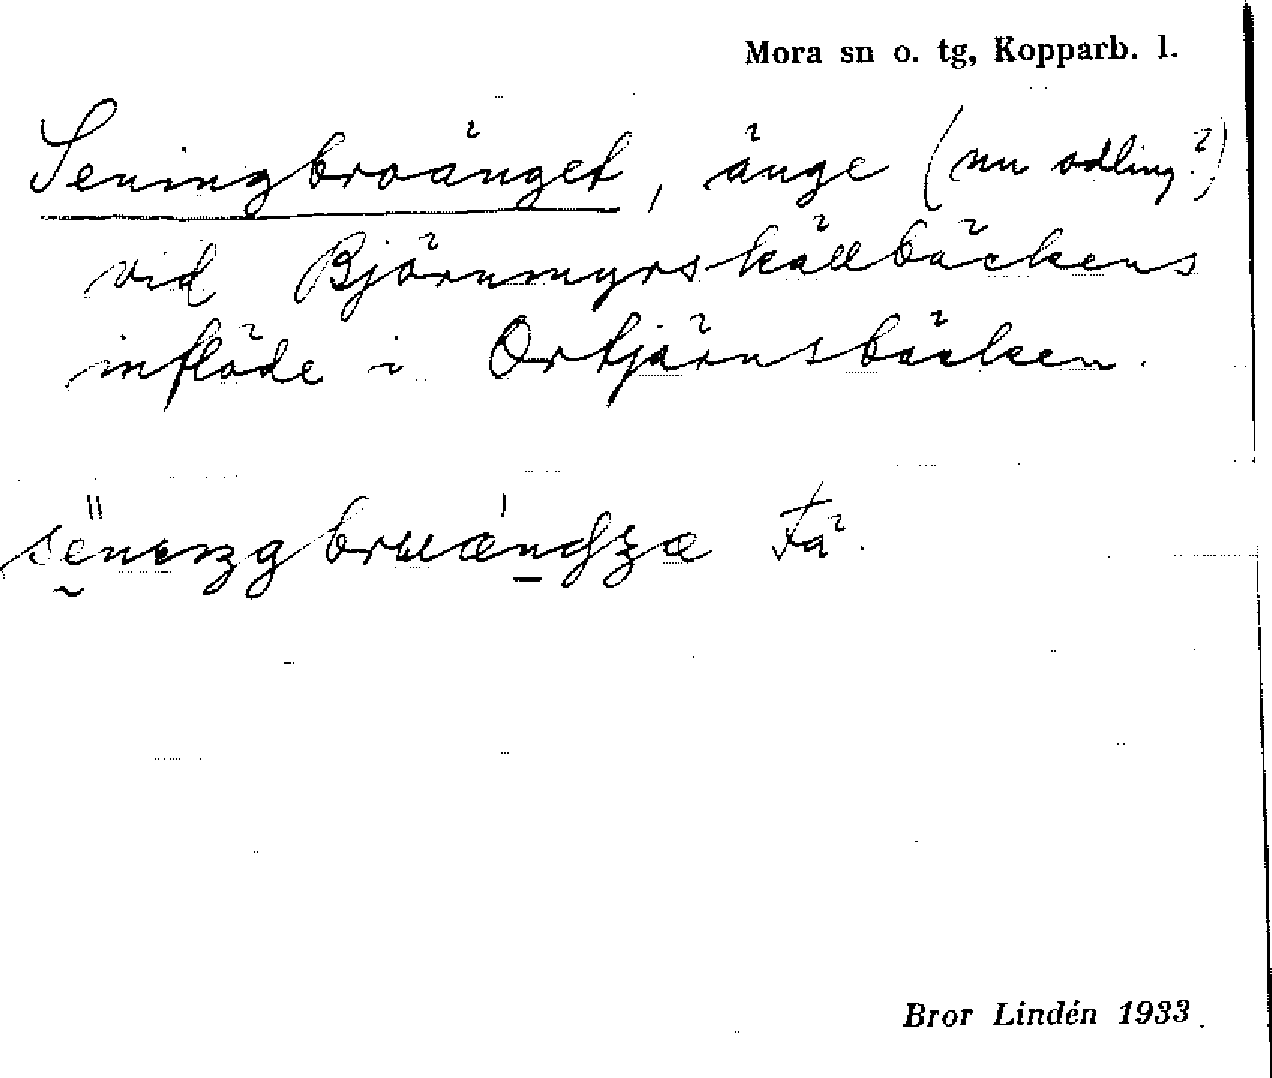 Mora sn o. tg, Kopparb. l.
Seningbroänget, änge (nu odling?)
vid Björnmyrskällbäckens
inflöde i Ortjärnsbäcken.
Få.
Bror Lindén 1933